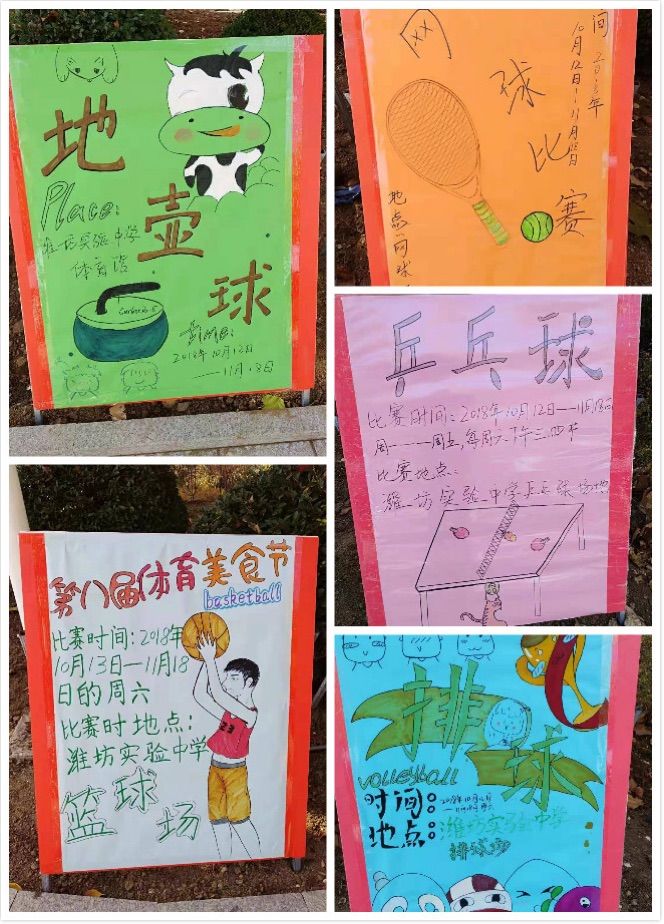 地
壶
球
Place:
潍坊实验中学
体育馆
Time:
2018年10月12日
——11月18日
球
比
赛
10月12日—11月18日
地点:网球
乒乓球
比赛时间:2018年10月12日—11月18日
周一——周五,每周六下午三.四节
比赛地点:
潍坊实验中学乒乓球场地
第八届体育美食节
basketball
比赛时间:2018年
10月13日—11月18
日的周六
比赛时地点:
潍坊实验中学
篮球场
23
排
球
volleyball
时间:
地点:潍坊实验中学
排球场